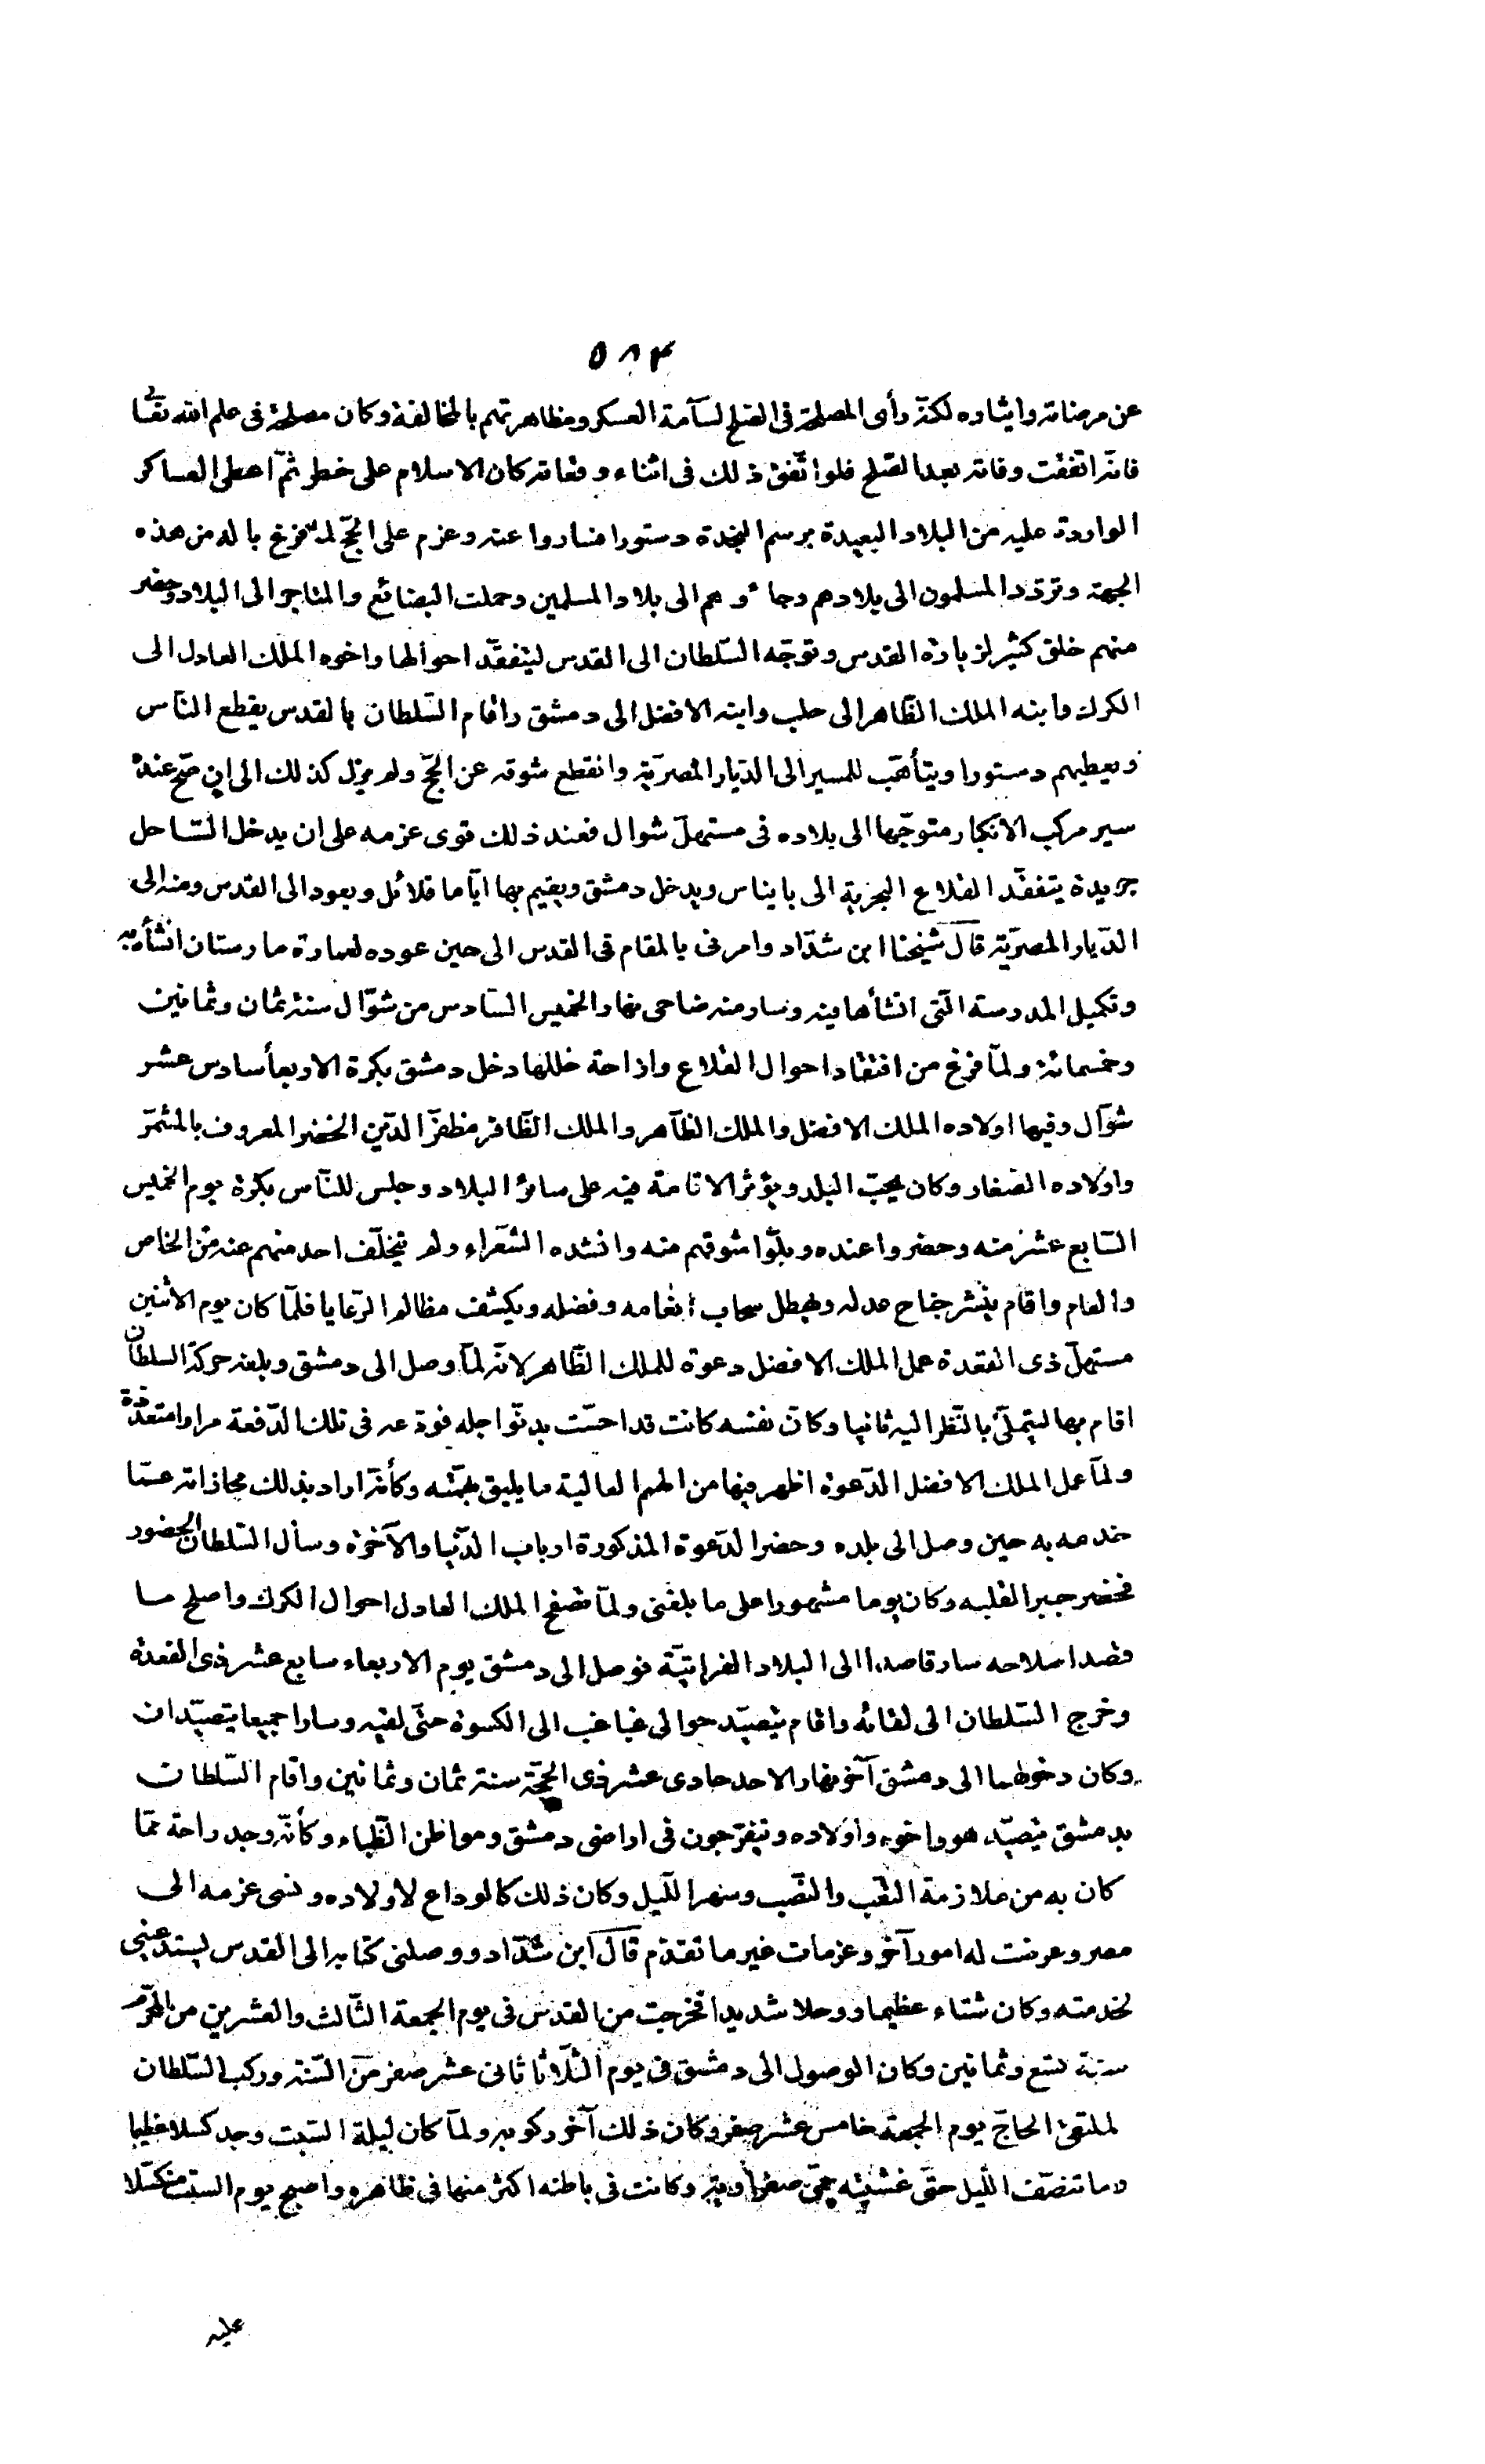 ٥٨٣
عن مرضاته وايثاره لكنّه رأى المصلحة فى الصّلح لسآمة العسكر ومظاهرتهم بالمخالفة وكان مصلحة فى علم الله تعالى
فانّه اتّفقت وفاته بعد الصّلح فلو اتّفق ذلك فى اثناء وقعاته كان الاسلام على خطر ثمّ اعطى العساكر
الواردة عليه من البلاد البعيدة برسم النجدة دستورا فساروا عنه وعزم على الحجّ لمّا فرغ باله من هذه
الجهة وتردّد المسلمون الى بلادهم وجاءوهم الى بلاد المسلمين وحملت البضائع والمتاجر الى البلاد وحضر
منهم خلق كثير لزيارة القدس وتوجّه السّلطان الى القدس ليتفقّد احوالها واخوه الملك العادل الى
الكرك وابنه الملك الظّاهر الى حلب وابنه الافضل الى دمشق واقام السّلطان بالقدس يقطع النّاس
ويعطيهم دستورا ويتأهّب للمسير الى الدّيار المصريّة وانقطع شوقه عن الحجّ ولم يزل كذلك الى ان صحّ عنده
سير مركب الانكتار متوجّها الى بلاده فى مستهلّ شوال فعند ذلك قوى عزمه على ان يدخل السّاحل
جريدة يتفقّد القلاع البحرية الى بانياس ويدخل دمشق ويقيم بها ايّاما قلائل ويعود الى القدس ومنه الى
الدّيار المصريّة قال شيخنا ابن شدّاد وامرنى بالمقام فى القدس الى حين عوده لعمارة مارستان انشأه به
وتكميل المدرسة الّتى انشأها فيه وسار منه ضاحى نهار الخميس السّادس من شوّال سنة ثمان وثمانين
وخمسمائة ولمّا فرغ من افتقاد احوال القلاع وازاحة خللها دخل دمشق بكرة الاربعأ سادس عشر
شوّال وفيها اولاده الملك الافضل والملك الظّاهر والملك الظّافر مظفّر الدّين الخضر المعروف بالمشمّر
واولاده الصّغار وكان يحبّ البلد ويؤثر الاقامة فيه على سائر البلاد وجلس للنّاس بكرة يوم الخميس
السّابع عشر منه وحضروا عنده وبلّوا شوقهم منه وانشده الشّعراء ولم يتخلّف احد منهم عنه من الخاص
والعام واقام ينشر جناح عدله ويهطل سحاب انعامه وفضله ويكشف مظالم الرّعايا فلمّا كان يوم الاثنين
مستهلّ ذى القعدة عمل الملك الافضل دعوة للملك الظّاهر لانّه لمّا وصل الى دمشق وبلغه حركة السلطان
اقام بها ليتملّى بالنّظر اليه ثانيا وكانّ نفسه كانت قد احسّت بدنوّ اجله فودعه فى تلك الدّفعة مرارا متعدّدة
ولمّا عمل الملك الافضل الدّعوة اظهر فيها من الهمم العالية ما يليق بهمّته وكأنّه اراد بذلك مجازاته عمّا
خدمه به حين وصل الى بلده وحضر الدّعوة المذكورة ارباب الدّنيا والآخرة وسأل السّلطان الحضور
فحضر جبرا لقلبه وكان يوما مشهودا على ما بلغنى ولمّا تصفح الملك العادل احوال الكرك واصلح ما
قصد اصلاحه سار قاصدا الى البلاد الفراتيّة فوصل الى دمشق يوم الاربعاء سابع عشر ذى القعدة
وخرج السّلطان الى لقائه واقام يتصيّد حوالى غباغب الى الكسوة حتّى لقيه وسارا جميعا يتصيّدان
وكان دخولهما الى دمشق آخر نهار الاحد حادى عشر ذى الحجّة سنة ثمان وثمانين واقام السّلطان
بدمشق يتصيّد هو واخوه واولاده ويتفرّجون فى اراضى دمشق ومواطن الظّباء وكأنّه وجد راحة ممّا
كان به من ملازمة التّعب والنّصب وسهر اللّيل وكان ذلك كالوداع لاولاده ونسى عزمه الى
مصر وعرضت له امور آخر وعزمات غير ما تقدّم قال ابن شدّاد ووصلنى كتابه الى القدس يستدعينى
لخدمته وكان شتاء عظيما ووحلا شديدا فخرجت من القدس فى يوم الجمعة الثّالث والعشرين من المحرّم
سنة تسع وثمانين وكان الوصول الى دمشق فى يوم الثّلاثا ثانى عشر صفر من السّنة وركب السّلطان
لملتقى الحاجّ يوم الجمعة خامس عشر صفر وكان ذلك آخر ركوبه ولمّا كان ليلة السّبت وجد كسلا عظيما
وما تنصّف اللّيل حتّى غشيته حمّى صفراويّة وكانت فى باطنه اكثر منها فى ظاهره واصبح يوم السبت متكسّلا
عليه